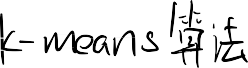 k-means算法